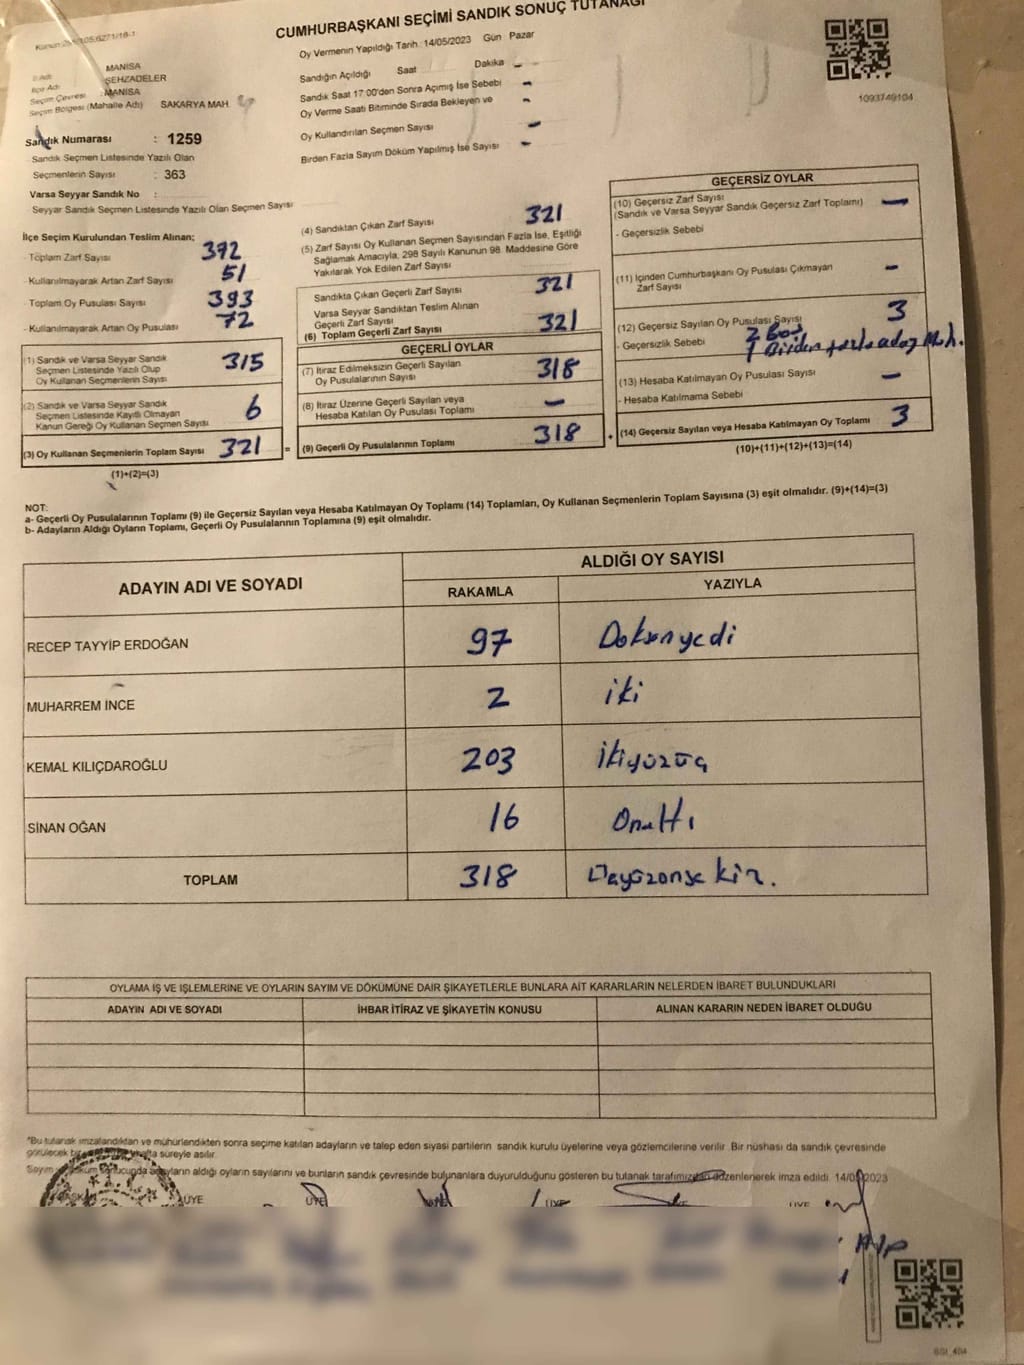 CUMHURBAŞKANI SEÇİMİ SANDIK SONUÇ TUTANAĞI
Oy Vermenin Yapıldığı Tarih: 14/05/2023 Gün Pazar
İl Adı MANİSA
İlçe Adı ŞEHZADELER
Seçim Çevresi : MANİSA
Seçim Bölgesi (Mahalle Adı) SAKARYA MAH.
Sandığın Açıldığı Saat Dakika -
Sandık Saat 17:00'den Sonra Açımış İse Sebebi -
Oy Verme Saati Bitiminde Sırada Bekleyen ve -
Oy Kullandırılan Seçmen Sayısı -
Birden Fazla Sayım Döküm Yapılmış İse Sayısı -
1093749104
Sandık Numarası : 1259
Sandık Seçmen Listesinde Yazılı Olan
Seçmenlerin Sayısı : 363
Varsa Seyyar Sandık No :
Seyyar Sandık Seçmen Listesinde Yazılı Olan Seçmen Sayısı
İlçe Seçim Kurulundan Teslim Alınan;
- Toplam Zarf Sayısı 372
- Kullanılmayarak Artan Zarf Sayısı 51
- Toplam Oy Pusulası Sayısı 393
- Kullanılmayarak Artan Oy Pusulası 72
(1) Sandık ve Varsa Seyyar Sandık
Seçmen Listesinde Yazılı Olup
Oy Kullanan Seçmenlerin Sayısı 315
(2) Sandık ve Varsa Seyyar Sandık
Seçmen Listesinde Kayıtlı Olmayan
Kanun Gereği Oy Kullanan Seçmen Sayısı 6
(3) Oy Kullanan Seçmenlerin Toplam Sayısı 321 =
(1)+(2)=(3)
(4) Sandıktan Çıkan Zarf Sayısı 321
(5) Zarf Sayısı Oy Kullanan Seçmen Sayısından Fazla İse, Eşitliği
Sağlamak Amacıyla, 298 Sayılı Kanunun 98. Maddesine Göre
Yakılarak Yok Edilen Zarf Sayısı
Sandıkta Çıkan Geçerli Zarf Sayısı 321
Varsa Seyyar Sandıktan Teslim Alınan
Geçerli Zarf Sayısı
(6) Toplam Geçerli Zarf Sayısı 321
GEÇERLİ OYLAR
(7) İtiraz Edilmeksizin Geçerli Sayılan
Oy Pusulalarının Sayısı 318
(8) İtiraz Üzerine Geçerli Sayılan veya
Hesaba Katılan Oy Pusulası Toplamı -
(9) Geçerli Oy Pusulalarının Toplamı 318
GEÇERSİZ OYLAR
(10) Geçersiz Zarf Sayısı
(Sandık ve Varsa Seyyar Sandık Geçersiz Zarf Toplamı) -
- Geçersizlik Sebebi
(11) İçinden Cumhurbaşkanı Oy Pusulası Çıkmayan
Zarf Sayısı -
(12) Geçersiz Sayılan Oy Pusulası Sayısı 3
- Geçersizlik Sebebi 2 Boş
1 Birden fazla aday Müh.
(13) Hesaba Katılmayan Oy Pusulası Sayısı -
- Hesaba Katılmama Sebebi
(14) Geçersiz Sayılan veya Hesaba Katılmayan Oy Toplamı 3
(10)+(11)+(12)+(13)=(14)
NOT:
a- Geçerli Oy Pusulalarının Toplamı (9) ile Geçersiz Sayılan veya Hesaba Katılmayan Oy Toplamı (14) Toplamları, Oy Kullanan Seçmenlerin Toplam Sayısına (3) eşit olmalıdır. (9)+(14)=(3)
b- Adayların Aldığı Oyların Toplamı, Geçerli Oy Pusulalarının Toplamına (9) eşit olmalıdır.
ADAYIN ADI VE SOYADI ALDIĞI OY SAYISI
RAKAMLA YAZIYLA
RECEP TAYYİP ERDOĞAN 97 Doksanyedi
MUHARREM İNCE 2 iki
KEMAL KILIÇDAROĞLU 203 ikiyüzüç
SİNAN OĞAN 16 Onaltı
TOPLAM 318 Üçyüzonsekiz.
OYLAMA İŞ VE İŞLEMLERİNE VE OYLARIN SAYIM VE DÖKÜMÜNE DAİR ŞİKAYETLERLE BUNLARA AİT KARARLARIN NELERDEN İBARET BULUNDUKLARI
ADAYIN ADI VE SOYADI İHBAR İTİRAZ VE ŞİKAYETİN KONUSU ALINAN KARARIN NEDEN İBARET OLDUĞU
*Bu tutanak imzalandıktan ve mühürlendikten sonra seçime katılan adayların ve talep eden siyasi partilerin sandık kurulu üyelerine veya gözlemcilerine verilir. Bir nüshası da sandık çevresinde
görülecek bir hafta süreyle asılır.
Sayım döküm sonucunda adayların aldığı oyların sayılarını ve bunların sandık çevresinde bulunanlara duyurulduğunu gösteren bu tutanak tarafımızdan düzenlenerek imza edildi. 14/05/2023
BAŞKAN ÜYE ÜYE ÜYE ÜYE